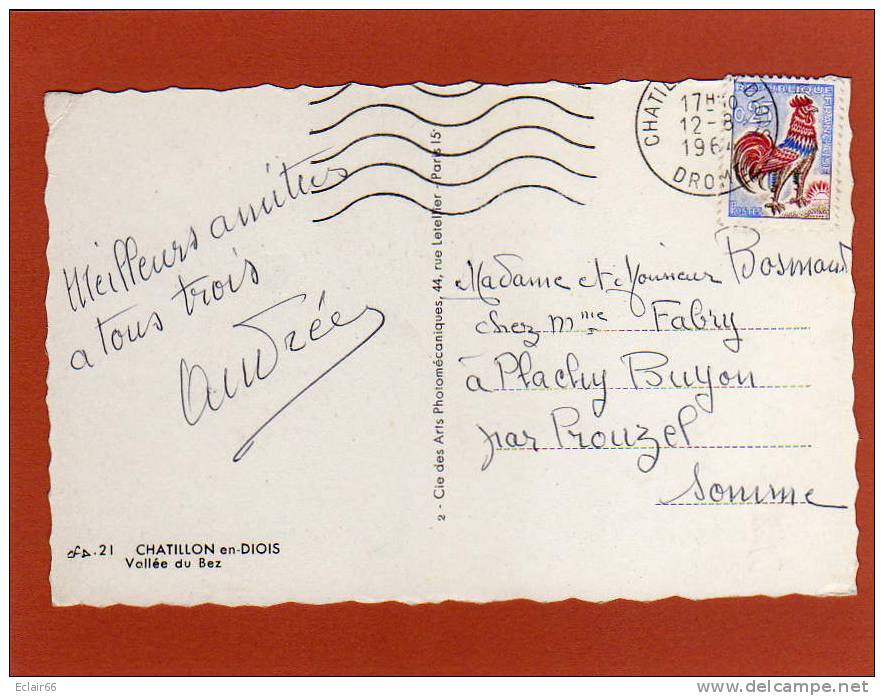 Meilleurs amitiés
a tous trois
Andrée
CFA.21 CHATILLON en-DIOIS
Vallée du Bez
2 - Cie des Arts Photomécaniques, 44, rue Letellier - Paris 15e
17H
12-8
1964
DROME
REPUBLIQUE FRANÇAISE
0,25
POSTES
Madame et Monsieur Bosmans
chez Mme Fabry
à Plachy Buyon
par Prouzel
Somme
Eclair66
www.delcampe.net